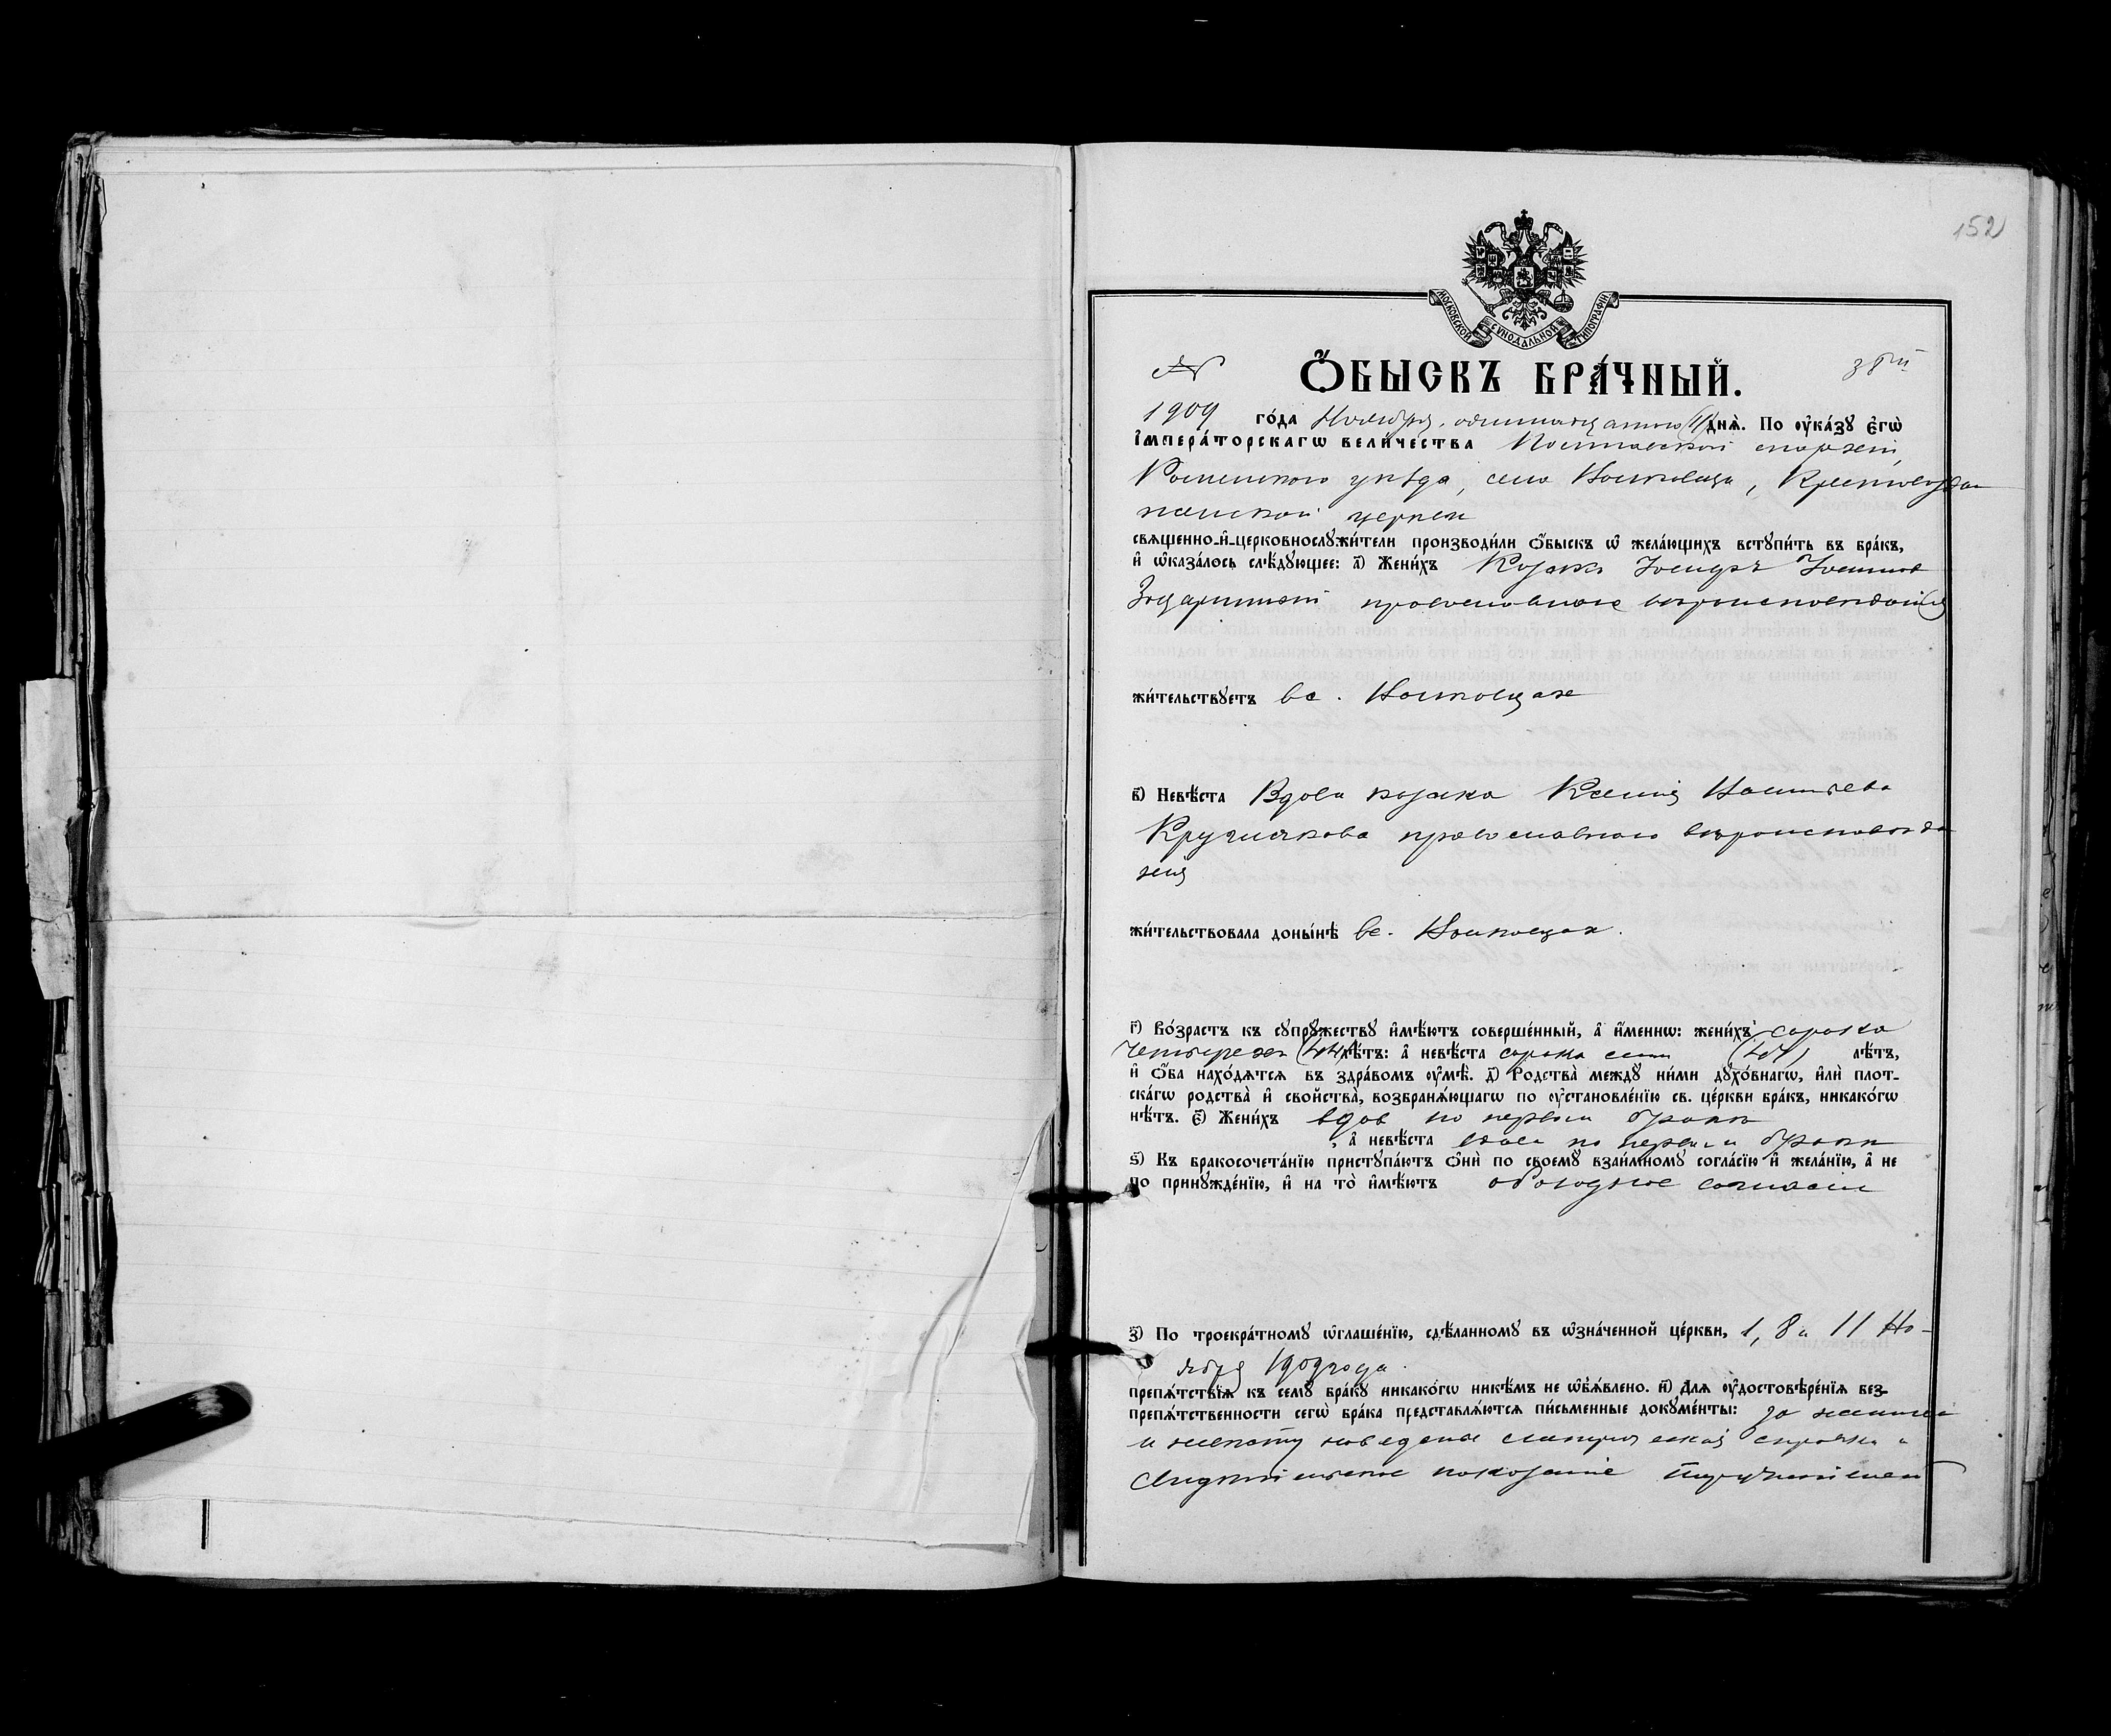 152
МОСКОВСКОЙ СѴНОДАЛЬНОЙ ТИПОГРАФІИ
№ 38й
Ѻ҆БЫСКЪ БРА́ЧНЫЙ.
1909 го́да Ноября одиннадцатаго (11) дня̀. По ᲂу҆ка́зꙋ Є҆гѡ̀
І҆мпера́торскагѡ вели́чества Полтавской епархіи,
Роменскаго уѣзда, села Коровинцы, Крестовоздви
женской церкви
свѧщенно-и҆-церковнослꙋжи́тели производи́ли ѻ҆́быскъ ѡ҆ жела́ющихъ встꙋпи́ть въ бра́къ,
и҆ ѡ҆каза́лось слѣ́дꙋющее: а҃) Жени́хъ Козакъ Іосифъ
православнаго вѣроисповѣданія
жи́тельствꙋетъ въ с.
в҃) Невѣ́ста Вдова козака Ксенія
православнаго вѣроисповѣда
нія
жи́тельствовала доны́нѣ въ с.
г҃) Во́зрастъ къ сꙋпрꙋ́жествꙋ и҆мѣ́ютъ соверше́нный, а҆ и҆́меннѡ: жени́хъ сорока
четырехъ (44) лѣ́тъ: а҆ невѣ́ста сорока семи (47) лѣ́тъ,
и҆ ѻ҆́ба нахо́дѧтсѧ въ здра́вомъ ᲂу҆мѣ̀. д҃) Родства̀ междꙋ ни́ми дꙋхо́внагѡ, и҆лѝ плот-
ска́гѡ родства̀ и҆ свойства̀, возбранѧ́ющагѡ по ᲂу҆становле́нїю св. це́ркви бра́къ, никако́гѡ
нѣ́тъ. є҃) Жени́хъ вдовъ по первомъ бракѣ
, а҆ невѣ́ста вдова по первомъ бракѣ
ѕ҃) Къ бракосочета́нїю пристꙋпа́ютъ ѻ҆нѝ по своемꙋ̀ взаи́мномꙋ согла́сїю и҆ жела́нїю, а҆ не
по принꙋжде́нїю, и҆ на то̀ и҆мѣ́ютъ обоюдное согласіе
з҃) По троекра́тномꙋ ѡ҆глаше́нїю, сдѣ́ланномꙋ въ ѡ҆зна́ченной це́ркви, 1, 8 и 11 Но-
ября 1909 года.
препѧ́тствїѧ къ семꙋ̀ бра́кꙋ никако́гѡ никѣ́мъ не ѡ҆б̾ѧ́влено. и҃) Длѧ ᲂу҆достовѣре́нїѧ без-
препѧ́тственности сегѡ̀ бра́ка представлѧ́ютсѧ пи́сьменные докꙋме́нты: за жениха
и невѣсту наведена метрическая справка и
показаніе поручителей